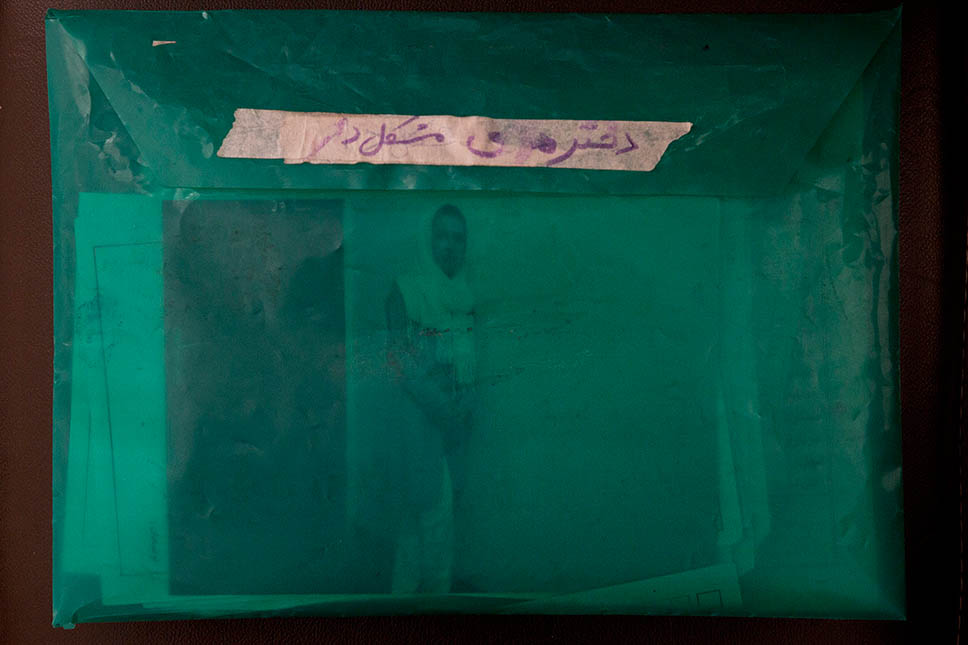 دخترهای مشکل دار